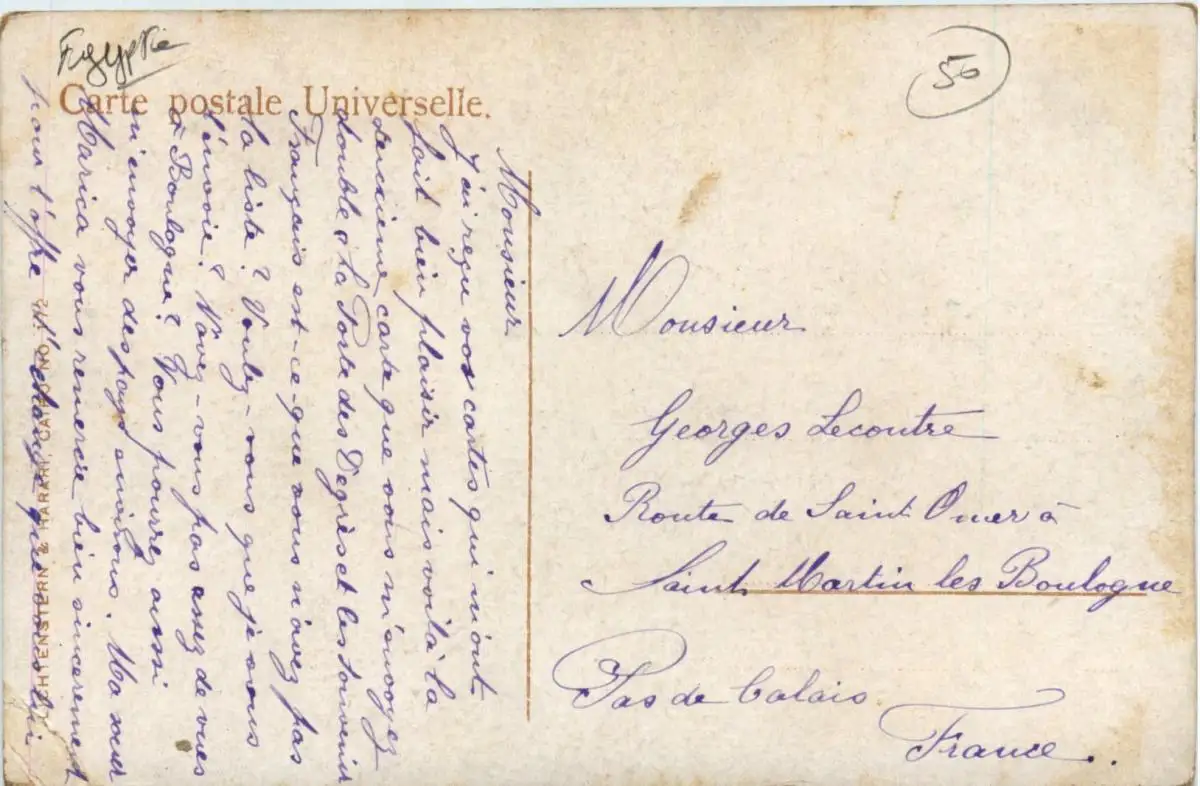 Egypte
50
Carte postale Universelle.
Monsieur
J'ai reçu vos cartes qui m'ont
fait bien plaisir mais voilà la
deuxième carte que vous m'envoyez
double, La Porte des Degrès et les souvenir
Français est-ce-que vous n'avez pas
la liste? Voulez-vous que je vous
l'envoie? N'avez-vous pas assez de vues
à Boulogne? Vous pourrez aussi
m'envoyer des pays environs. Ma soeur
Marica vous remercie bien sincerement
pour l'offre d'échange que vous lui
LICHTENSTERN & HARARI, CAIRO NO
Monsieur
Georges Lecoutre
Route de Saint Omer à
Saint Martin les Boulogne
Pas de Calais
France.